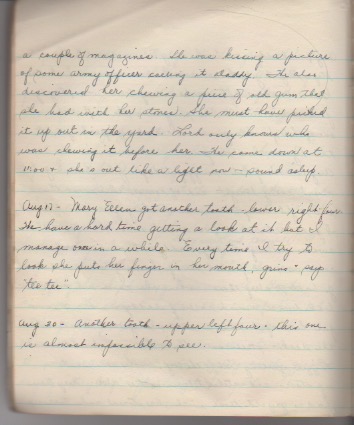 a couple of magazines. She was kissing a picture
of some army officer calling it daddy. He also
discovered her chewing a piece of old gum that
she had with her stones. She must have picked
it up out in the yard. Lord only knows who
was chewing it before her - He came down at
& she's out like a light now - sound asleep.
Aug 17 - Mary Ellen got another tooth - lower right four.
We have a hard time getting a look at it but I
manage once in a while. Every time I try to
look she puts her finger in her mouth, grins & says
"tee tee".
Aug 20 - Another tooth - upper left four - this one
is almost impossible to see.